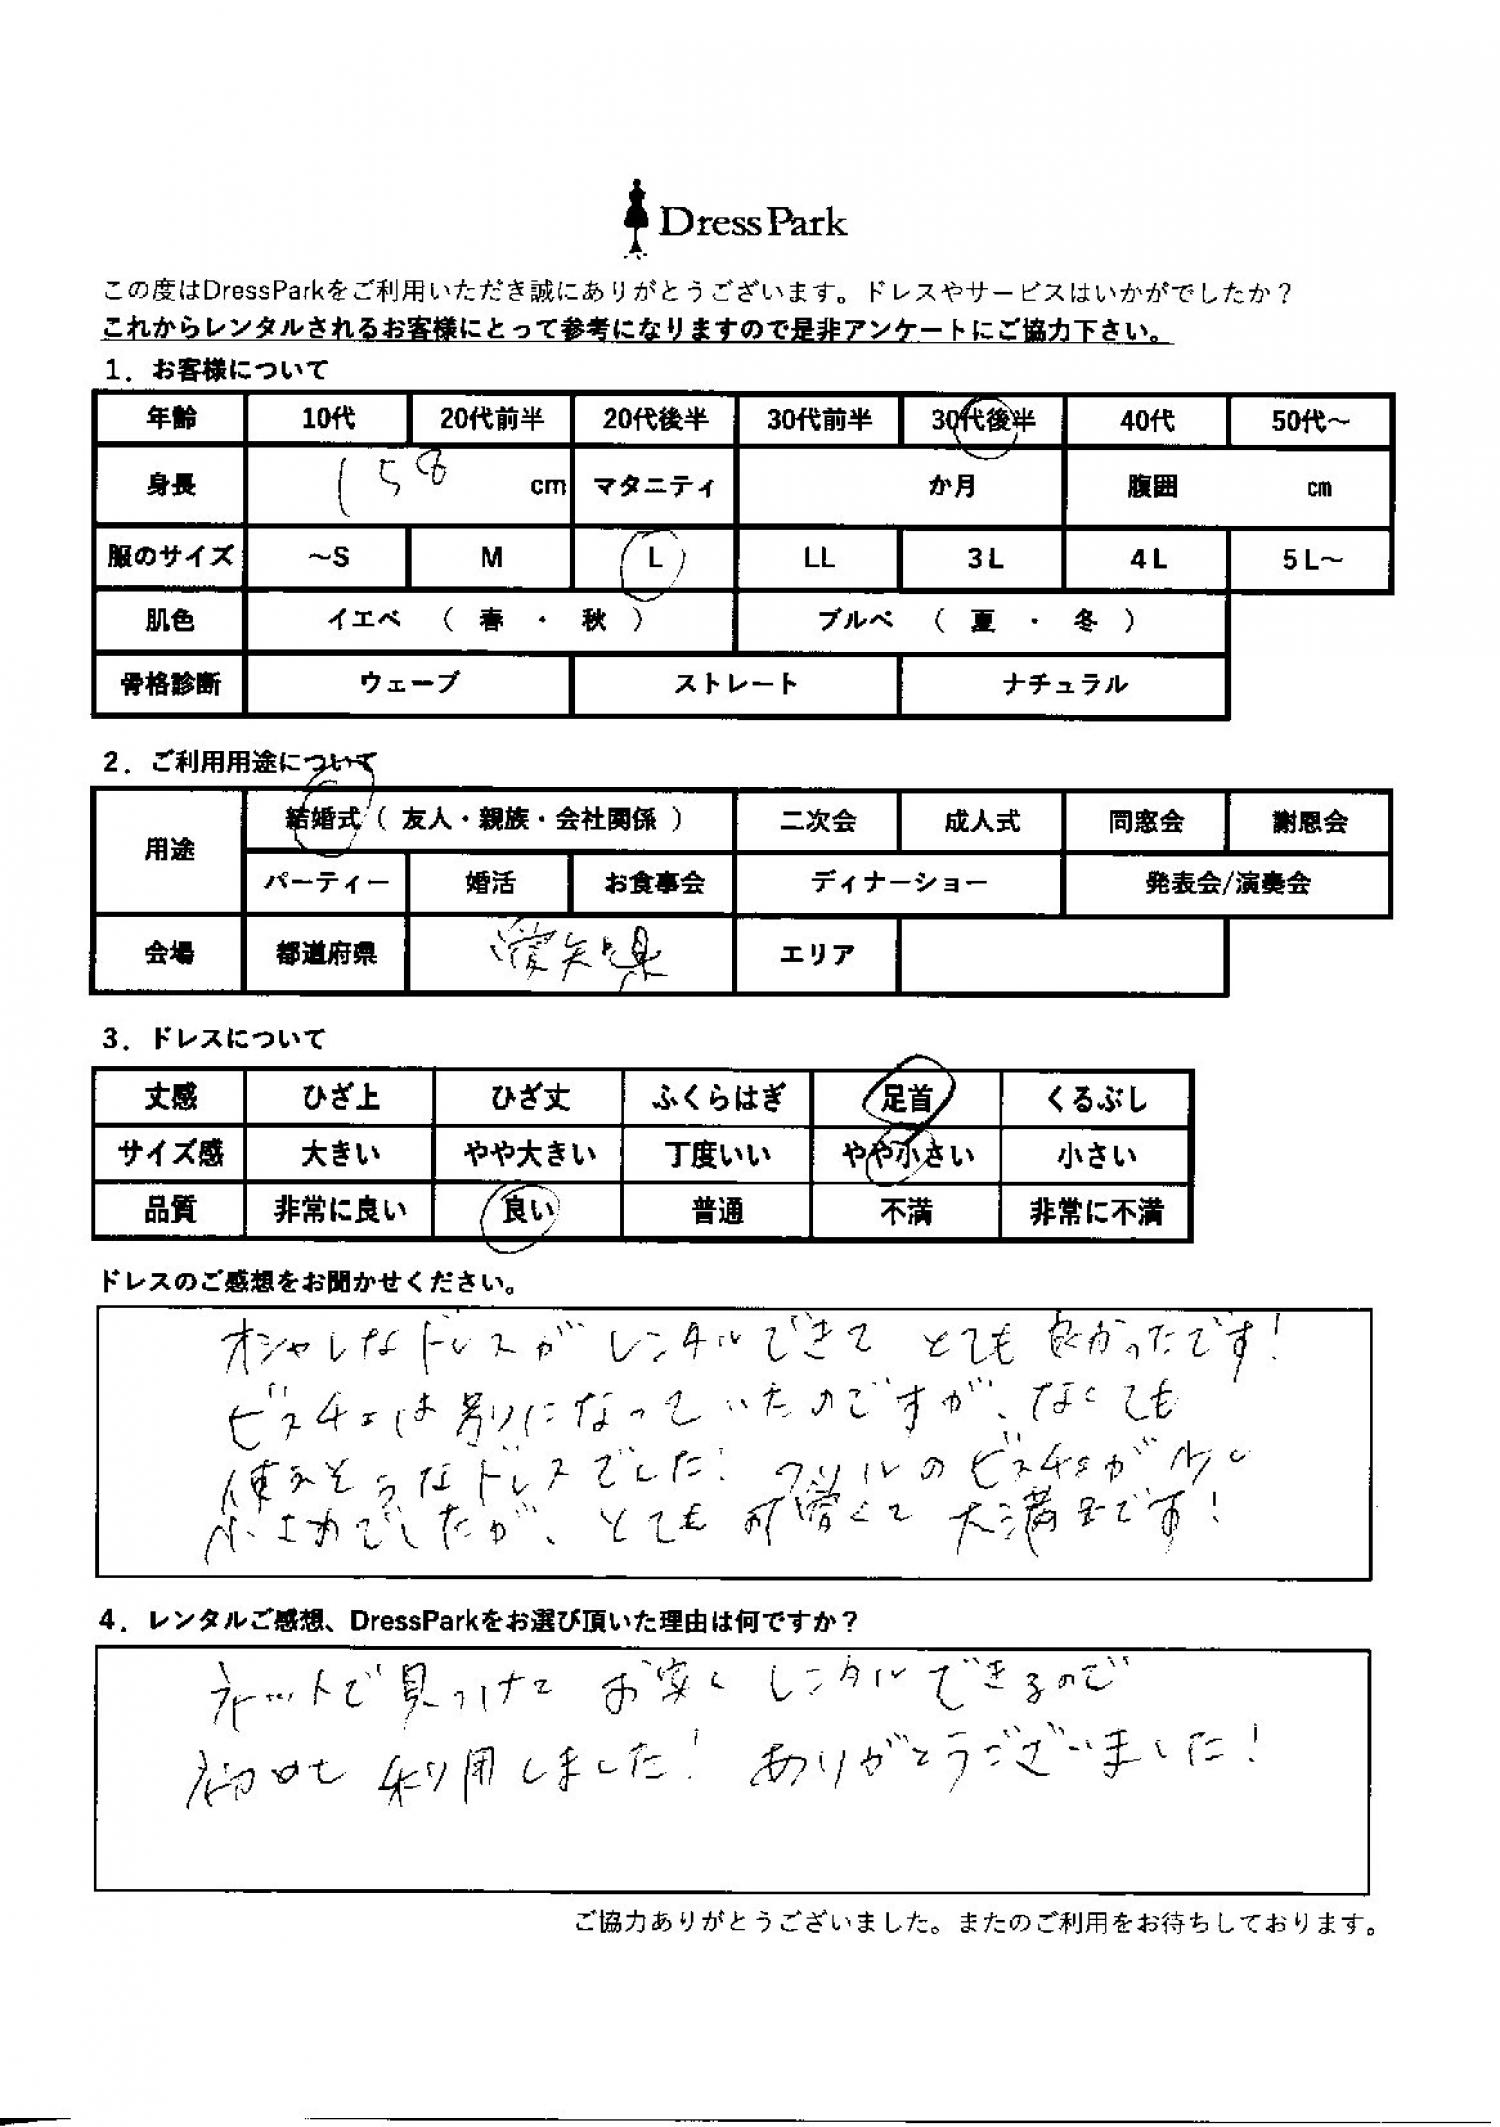 Dress Park
この度はDressParkをご利用いただき誠にありがとうございます。ドレスやサービスはいかがでしたか？
これからレンタルされるお客様にとって参考になりますので是非アンケートにご協力下さい。
1．お客様について
年齢 10代 20代前半 20代後半 30代前半 30代後半 40代 50代～
身長 158 cm マタニティ か月 腹囲 cm
服のサイズ ～S M L LL 3L 4L 5L～
肌色 イエベ （ 春 ・ 秋 ） ブルベ （ 夏 ・ 冬 ）
骨格診断 ウェーブ ストレート ナチュラル
2．ご利用用途について
用途 結婚式（ 友人・親族・会社関係 ） 二次会 成人式 同窓会 謝恩会
パーティー 婚活 お食事会 ディナーショー 発表会/演奏会
会場 都道府県 愛知県 エリア
3．ドレスについて
丈感 ひざ上 ひざ丈 ふくらはぎ 足首 くるぶし
サイズ感 大きい やや大きい 丁度いい やや小さい 小さい
品質 非常に良い 良い 普通 不満 非常に不満
ドレスのご感想をお聞かせください。
オシャレなドレスがレンタルできて とても良かったです！
ビスチェは別になっていたのですが、なくても
使えそうなドレスでした！フリルのビスチェが少し
小さめでしたが、とても可愛くて大満足です！
4．レンタルご感想、DressParkをお選び頂いた理由は何ですか？
ネットで見つけて お安く レンタルできるので
初めて 利用しました！ ありがとうございました！
ご協力ありがとうございました。またのご利用をお待ちしております。